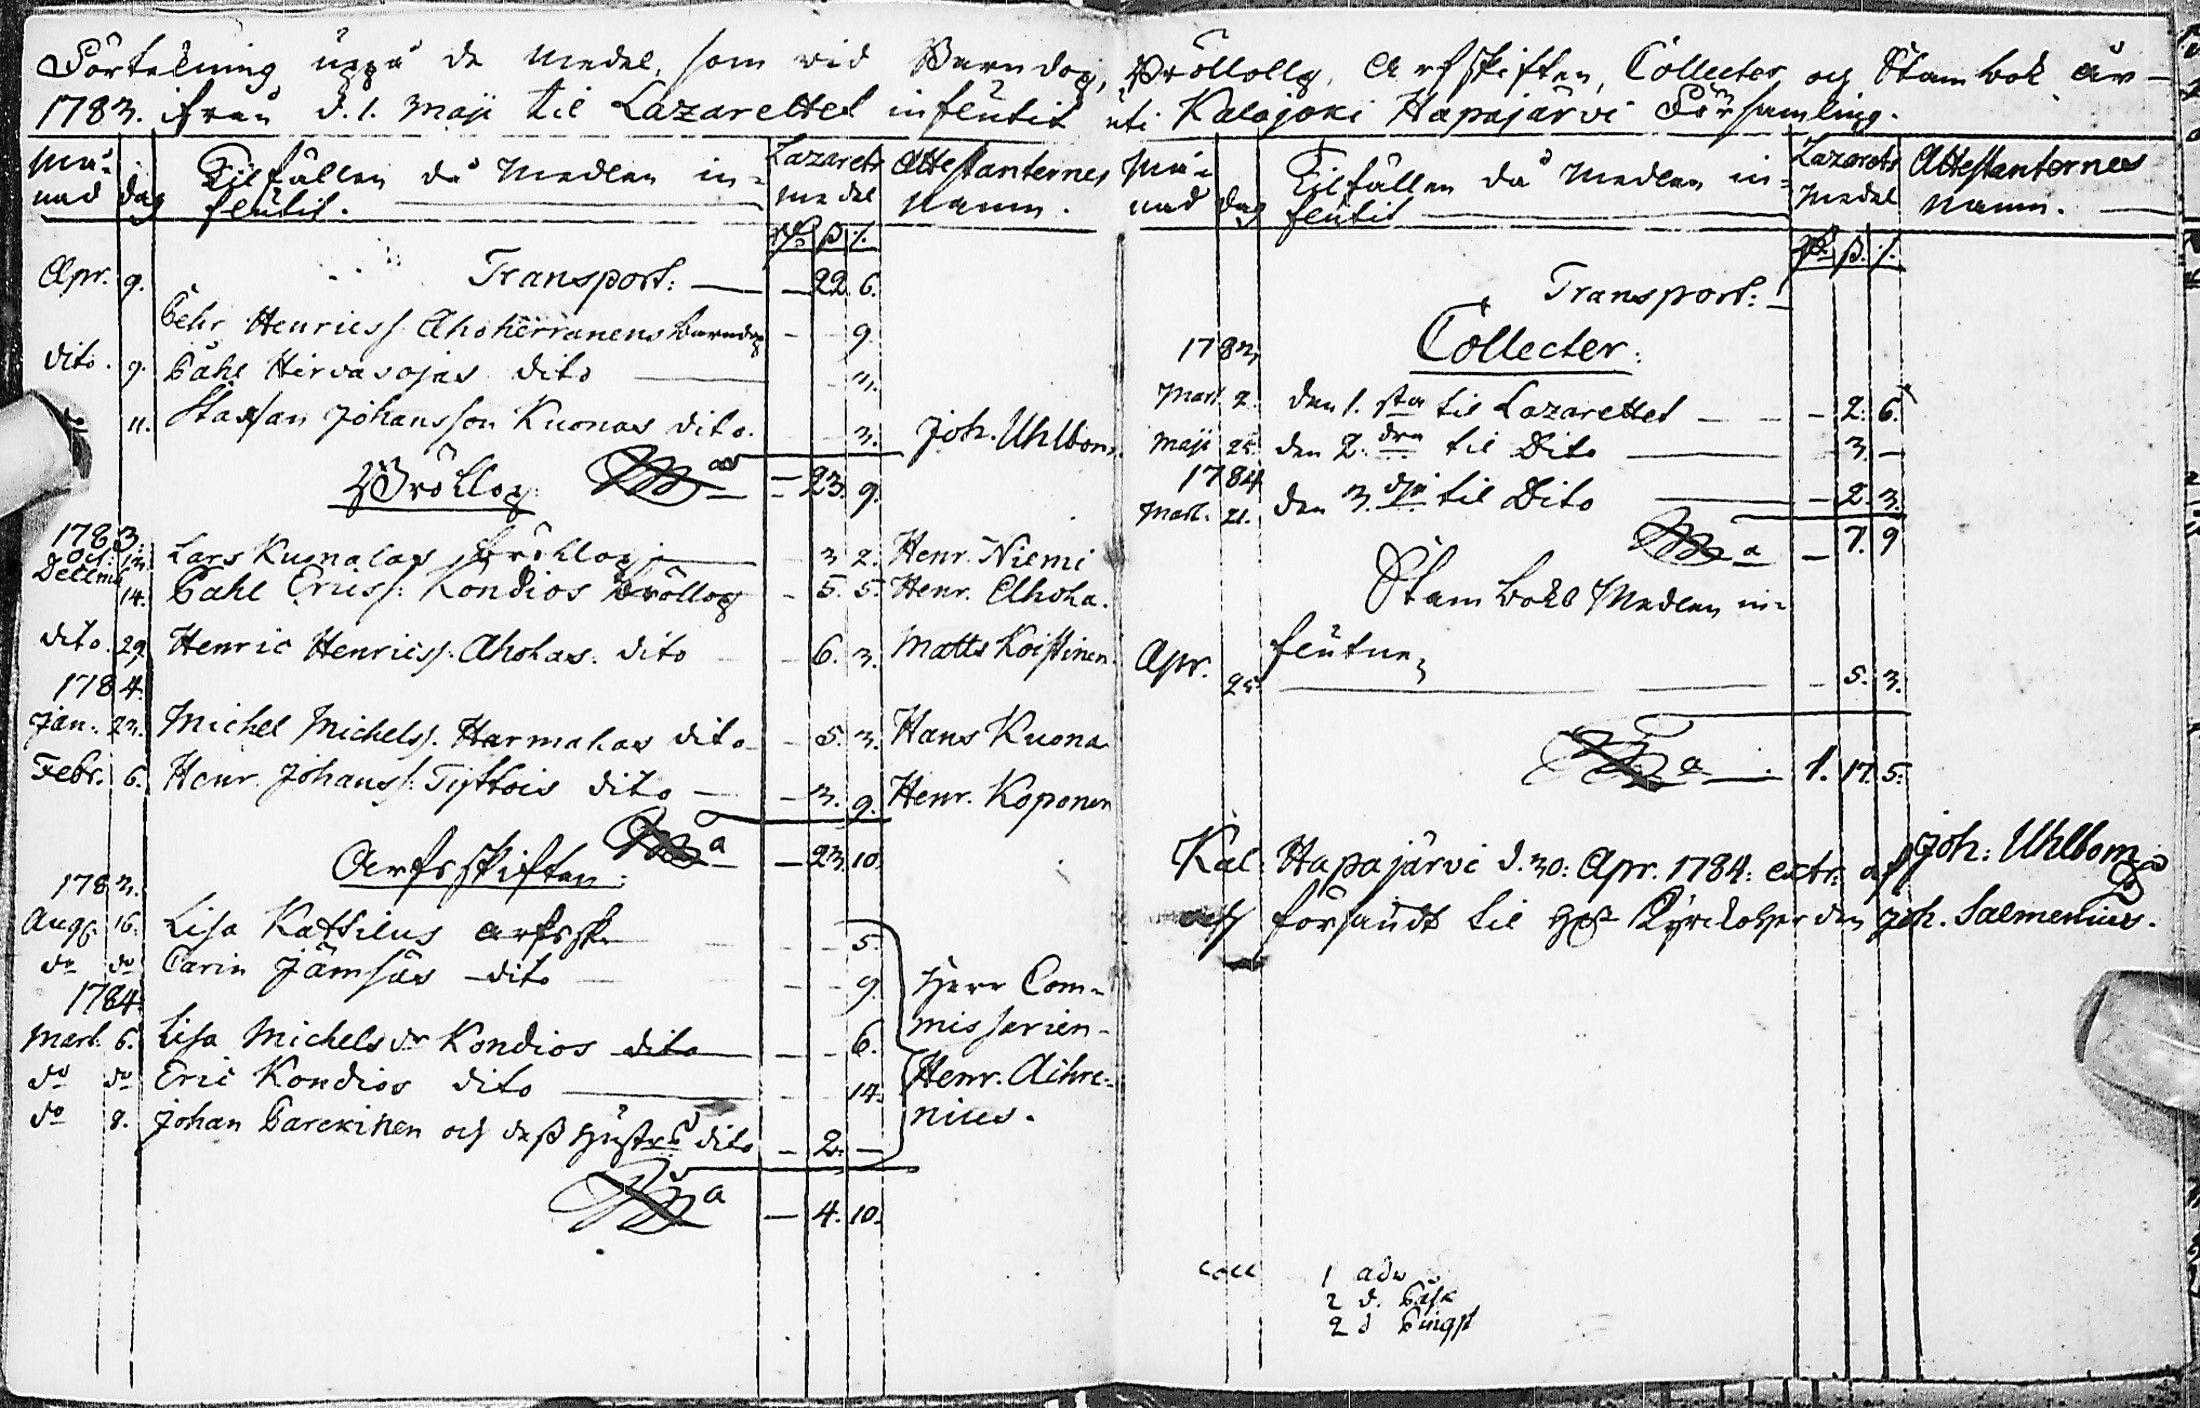 Förtekning uppå de Medel, som vid Barndop, Bröllopp, Arfskiften, Collecter och Stambok år
1783. ifrån d. 1. Maji til Lazarettet influtit uti Kalajoki Hapajärvi Församling.
Må-
nad
dag
Tilfällen då Medlen in-
flutit.
Lazarets
medel
Attestanternes
Namn.
Rd ß /.
Apr. 9. Transport: — — 22. 6.
Pehr Henricss. Ahoherranens barndop — — 9.
dito. 9. Påhl Hirvasojas dito — 3.
11. Staffan Johansson Kuonas dito. 3. Joh. Uhlbom.
Bröllop: Sma — 23. 9.
1783.
Oct. 12. Lars Kumalas bröllop — 3 2. Henr. Niemi
Decemb. 14. Påhl Ericss: Kondios bröllop — 5. 5. Henr. Ahoha.
dito. 29. Henric Henricss. Ahohas. dito — 6. 3. Matts Koistinen.
1784.
Jan. 23. Michel Michelss. Harmalas dito — 5. 3. Hans Kuona
Febr. 6. Henr. Johanss: Tyttois dito — 3. 9. Henr. Koponen
Sma — 23. 10.
Arfsskiften:
1783.
Aug. 16. Lisa Kattilus arfssk. — 5.
do do Carin Jämsäs dito — 9.
1784
Mart. 6. Lisa Michelsdr Kondios dito — — 6.
do do Eric Kondios dito — 14.
do 8. Johan Parckinen och dess Hustrus dito — 2. —
Herr Com-
missarien
Henr. Aihre-
nius.
Sma — 4. 10.
Må-
nad
dag
Tilfällen då Medlen in-
flutit
Lazarets
Medel
Attestanternes
Namn.
Rd ß. /.
Transport: —
Collecter:
1783
Mart. 2. den 1. sta til Lazarettet — — 2. 6.
Maji 25. den 2. dra til Dito — 3. —
1784
Mart. 21. den 3. dje til Dito — — 2. 3.
Sma — 7. 9
Stamboks Medlen in-
flutne,
Apr. 25. — — 5. 3.
Sma — 1. 17. 5.
Kal. Hapajärvi d. 30: Apr. 1784: extr. af Joh: Uhlbom
och försändt til Hr Kyrckoherden Joh. Salmenius.
Coll 1 adv
2 d. Påsk
2 d Pingst